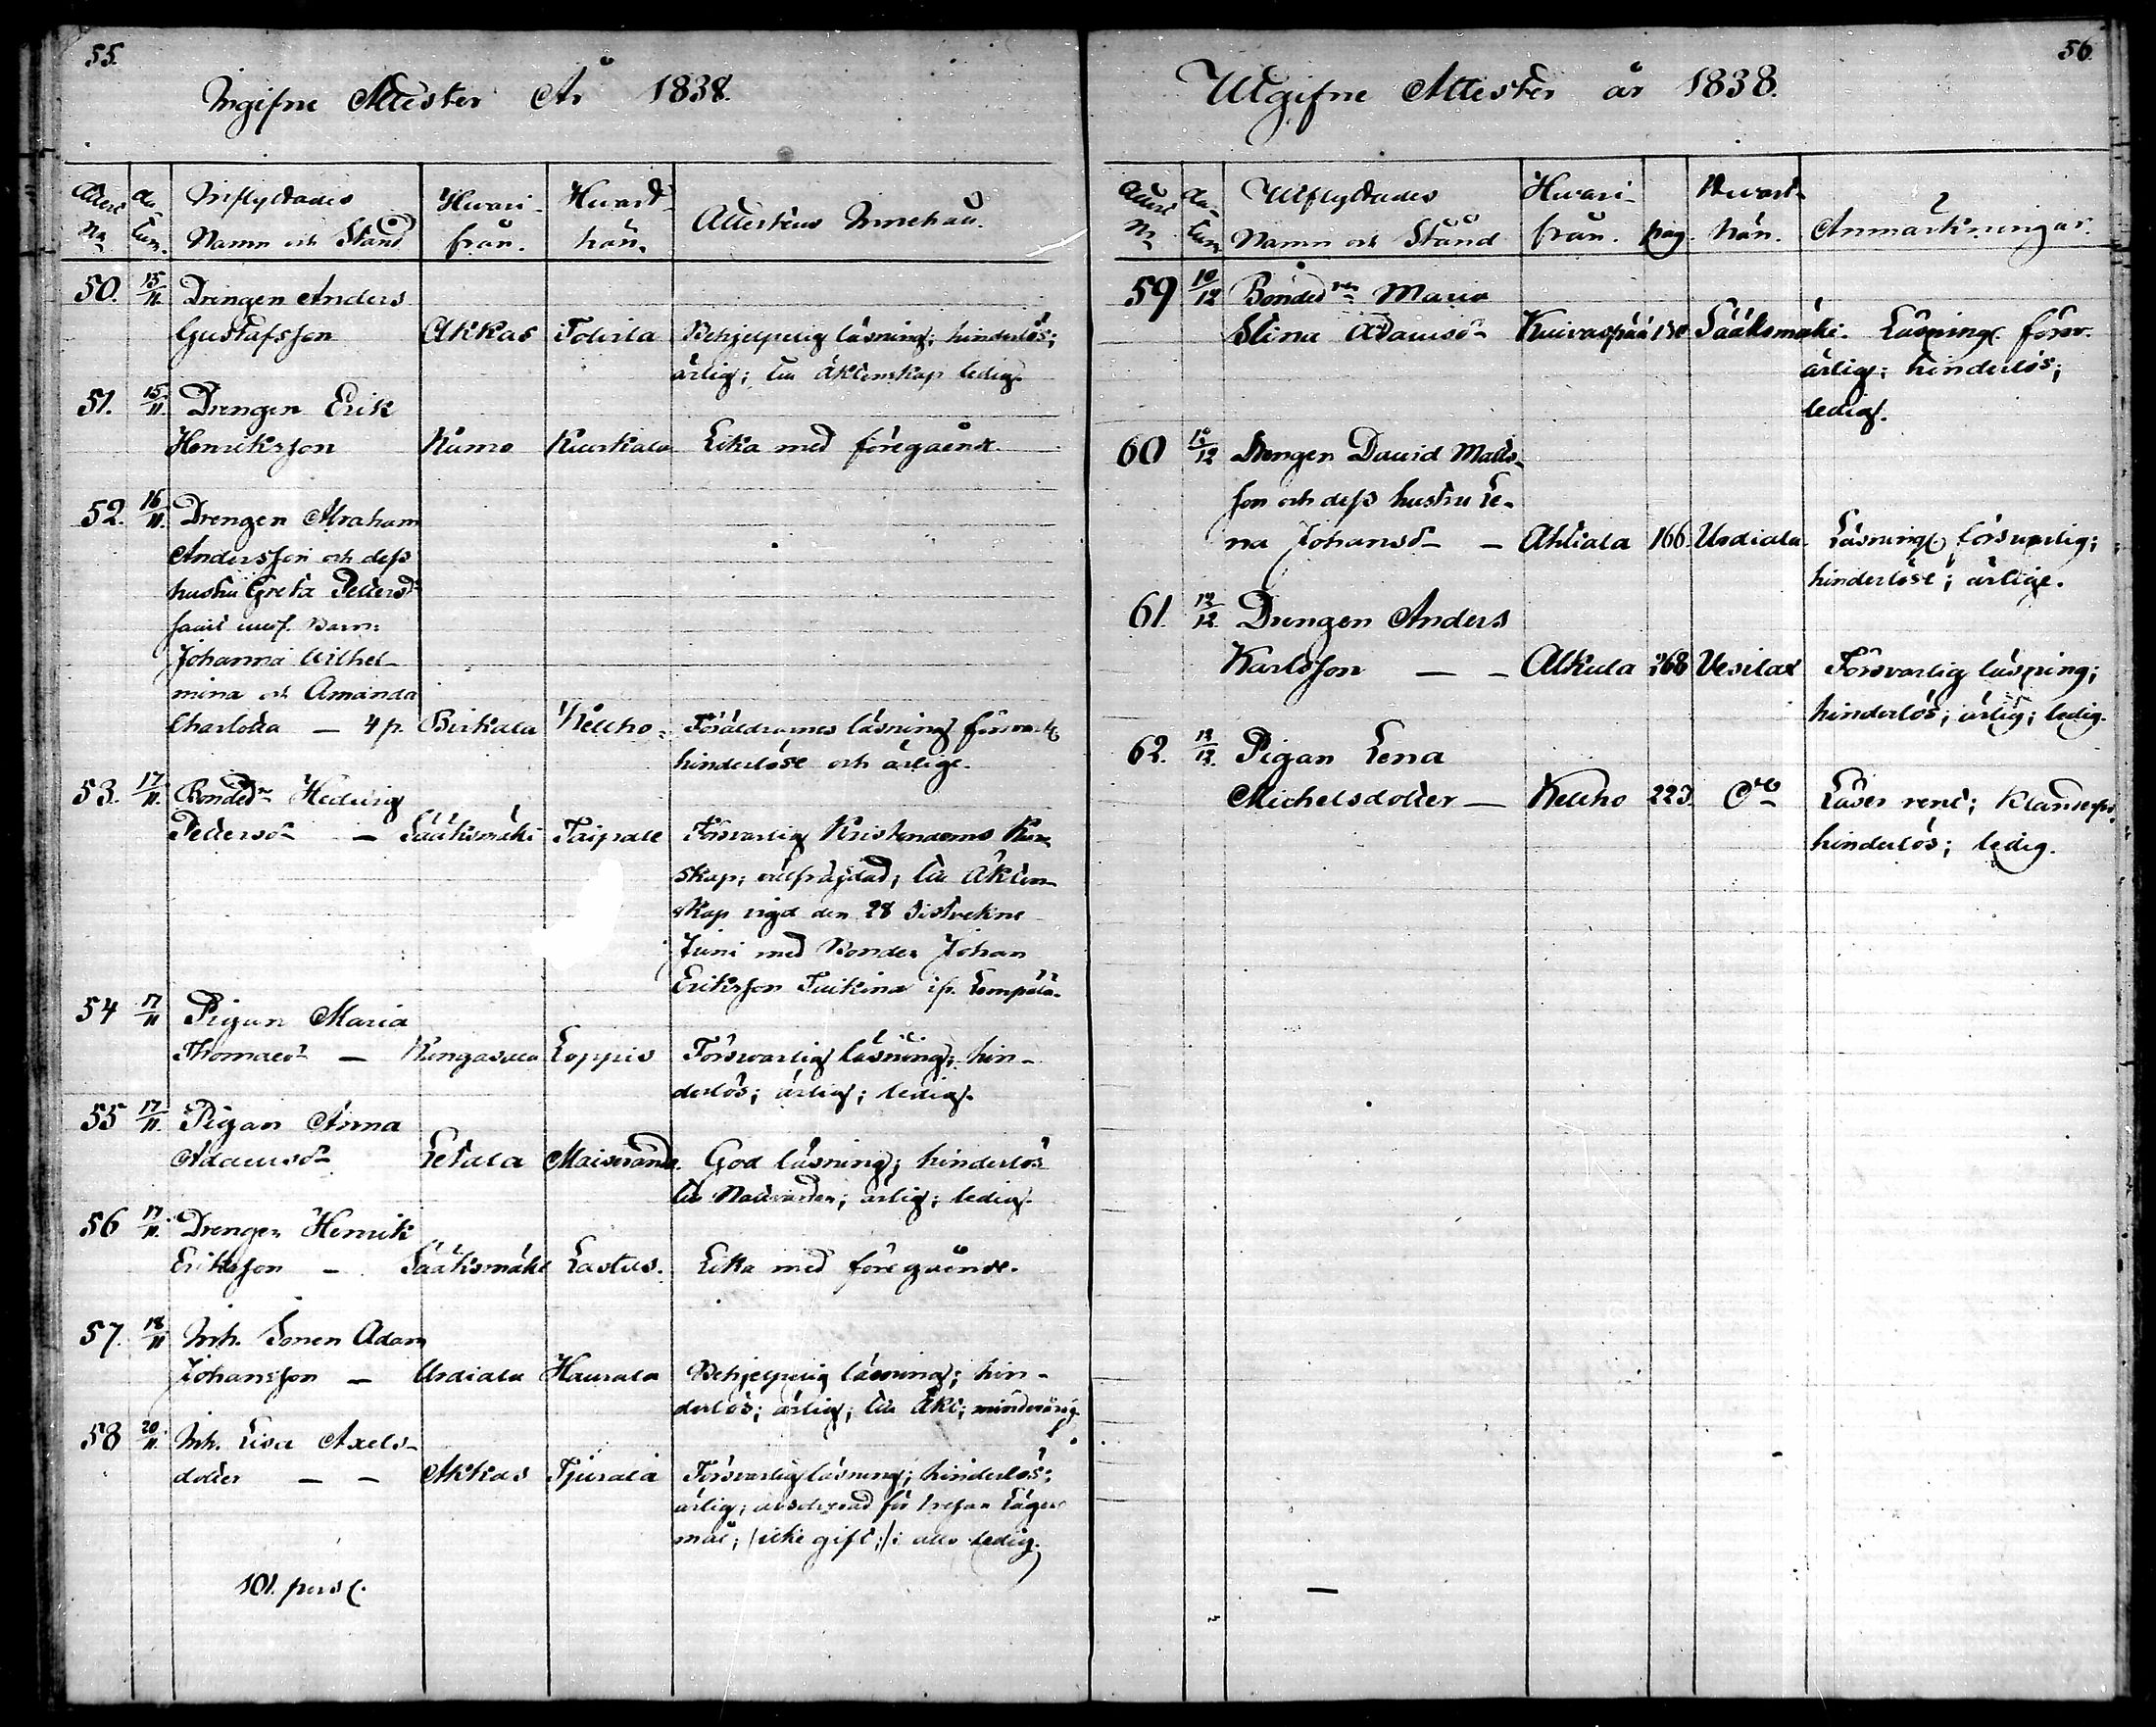 55.
Ingifne Attester År 1838.
Attest No
Da-tum.
Inflyttades Namn och Stånd
Hvari-från.
Hvart-hän.
Attestens Innehåll.
50. 15/11. Drengen Anders
Gustafsson Akkas Toivila Behjelpelig läsning; hinderlös;
ärlig; till Äktenskap ledig.
51. 15/11. Drengen Erik
Henriksson Kumo Kurkala Lika med föregående.
52. 16/11. Drengen Abraham
Andersson och dess
hustru Greta Petters dr
samt Barn:
Johanna Wilhel-
mina och Amanda
Charlotta — 4 p. Birkala Kellho Föräldrarnes läsning försvarlig
hinderlöse och ärlige.
53. 17/11. Bondedr Hedvig
Pettersdr — Sääksmäki Taipale Försvarlig Kristendoms Kun-
skap; välfrägdad; till Äkten-
skap vigd den 28 sistvekne
Juni med Bonden Johan
Eriksson Tuikina i Lempälä.
54 17/11 Pigan Maria
Thomasdr — Kangasala Loppis Försvarlig läsning; hin-
derlös; ärlig; ledig.
55 17/11. Pigan Anna
Adamsdr Letala Maiseranda. God läsning; hinderlös
till Nattvarden; ärlig; ledig.
56 17/11. Drengen Henrik
Eriksson — Sääksmäki Lastus. Lika med föregående.
57. 18/11 Inh. Sonen Adam
Johansson — Urdiala Haurala Behjelpelig läsning; hin-
derlös; ärlig; till Äkt; minderårig.
58 20/11. Inh. Lisa Axels-
dotter — — Akkas Tjurala Försvarlig läsning; hinderlös;
ärlig; absolverad för Lägers
mål; /: icke gift :/ : allts ledig.
101. pers.
56.
Utgifne Attester år 1838.
Attest No
Da-tum
Utflyttades Namn och Stånd
Hvari-från.
pag.
Hvart-hän.
Anmärkningar.
59 10/12 Bondedr Maria
Stina Adamsdr Kuivaspää 130 Sääksmäki. Läsning försv.
ärlig; hinderlös;
ledig.
60 10/12 Drengen David Matts-
son och dess hustru Le-
na Johansdr — Ahtiala 166. Urdiala. Läsning försvarlig;
hinderlöse; ärlige.
61. 12/12. Drengen Anders
Karlsson — — Alkula 168 Vesilax Försvarlig läsning;
hinderlös; ärlig; ledig.
62. 13/12. Pigan Lena
Michelsdotter — Kellho 223. Do Läser rent; Klanderfri,
hinderlös; ledig.